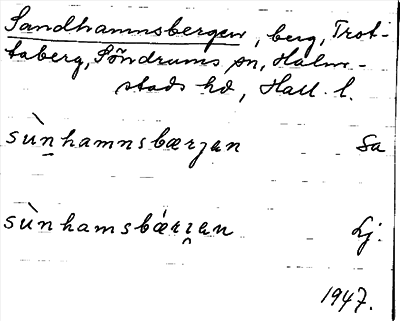 Sandhamnsbergen, berg, Trot-
taberg, Söndrums sn, Halm-
stads hd, Hall. l.
sùnhamnsbærjan Sa
sùnhamsbǽrjan Lj.
1947.